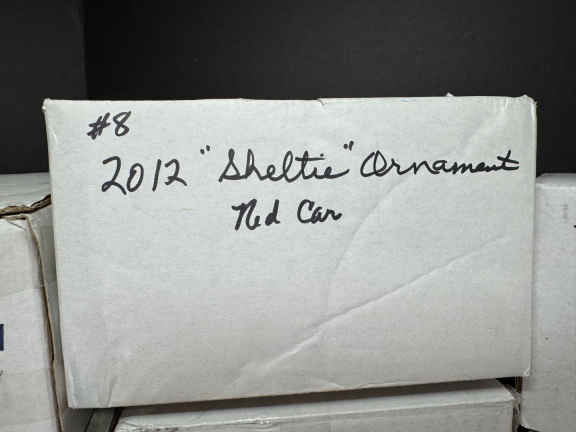 #8
2012 "Sheltie" Ornament
Red Car